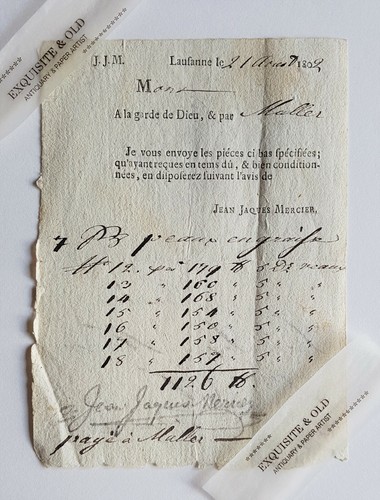 EXQUISITE & OLD
ANTIQUARY & PAPER ARTIST
J. J. M. Lausanne le 21 Aoust 1802
Mons
A la garde de Dieu, & par Muller
Je vous envoye les piéces ci bas spécifiées;
qu'ayant reçues en tems dû, & bien condition-
nées, en disposerez suivant l'avis de
JEAN JAQUES MERCIER,
7 peaux en graisse
N° 12. 179 ℔ 5 Dz veaux
13 " 160 " 5 " "
14 " 168 " 5 " "
15 " 154 " 5 " "
16 " 150 " 5 " "
17 " 158 " 5 " "
18 " 157 " 5 " "
1126 ℔.
Jean Jaques Mercier
payé à Muller
EXQUISITE & OLD
ANTIQUARY & PAPER ARTIST